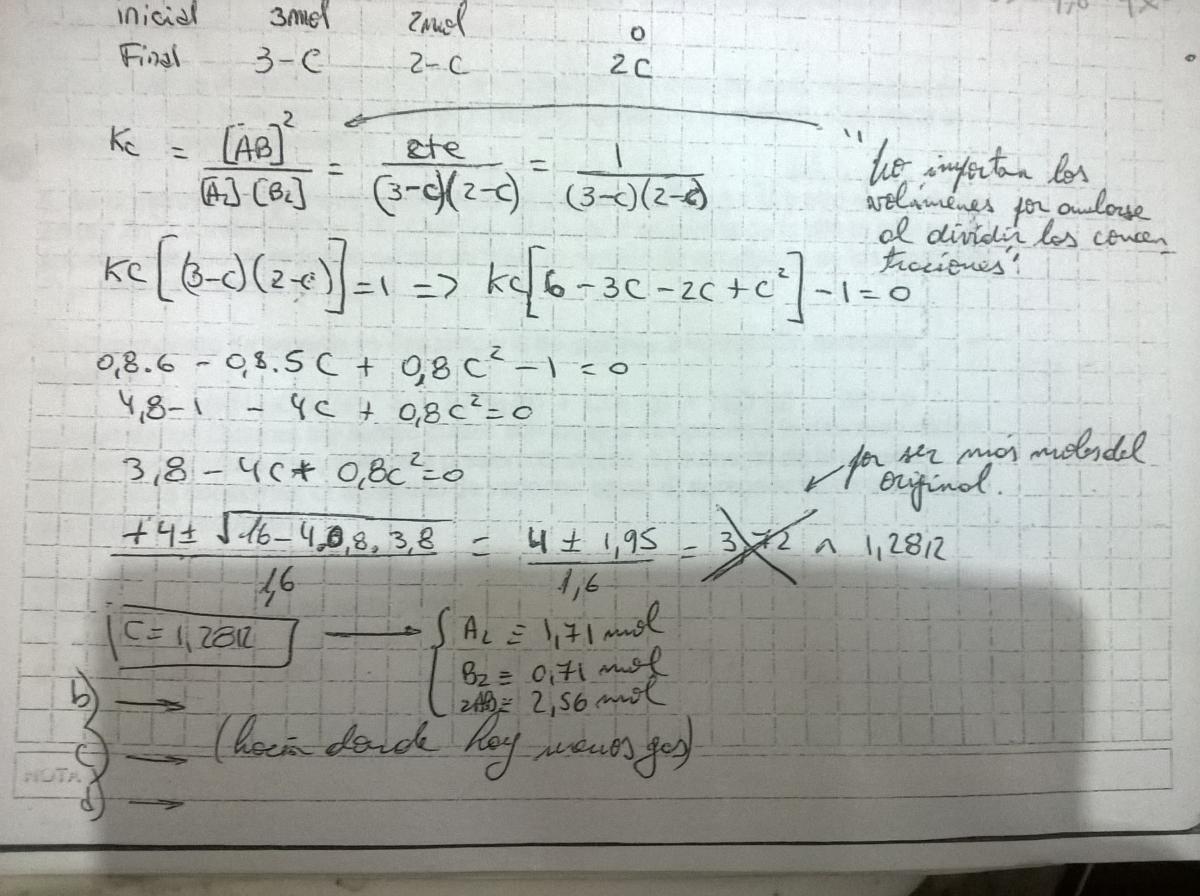 inicial 3mol 2mol 0
Final 3-C 2-C 2C
Kc = [AB]² / [A2]·[B2] = cte / (3-c)(2-c) = 1 / (3-c)(2-c)
"No importan los
volúmenes por anularse
al dividir las concen-
traciones".
Kc[(3-c)(2-c)]=1 => Kc[6-3C-2C+C²]-1=0
0,8.6 - 0,8.5C + 0,8C²-1=0
4,8-1 - 4C + 0,8C²=0
3,8 - 4C + 0,8C²=0
por ser más moles del
original.
+4± √16-4.0,8.3,8 / 1,6 = 4 ± 1,95 / 1,6 = 3,72 ∧ 1,2812
C=1,2812 → { A2 = 1,71 mol
B2 = 0,71 mol
2AB = 2,56 mol
b) →
c) → (hacia donde hay menos gas)
NOTA
d) →